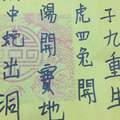 子九重生
虎四兔開
陽開寶地
中蛇出洞